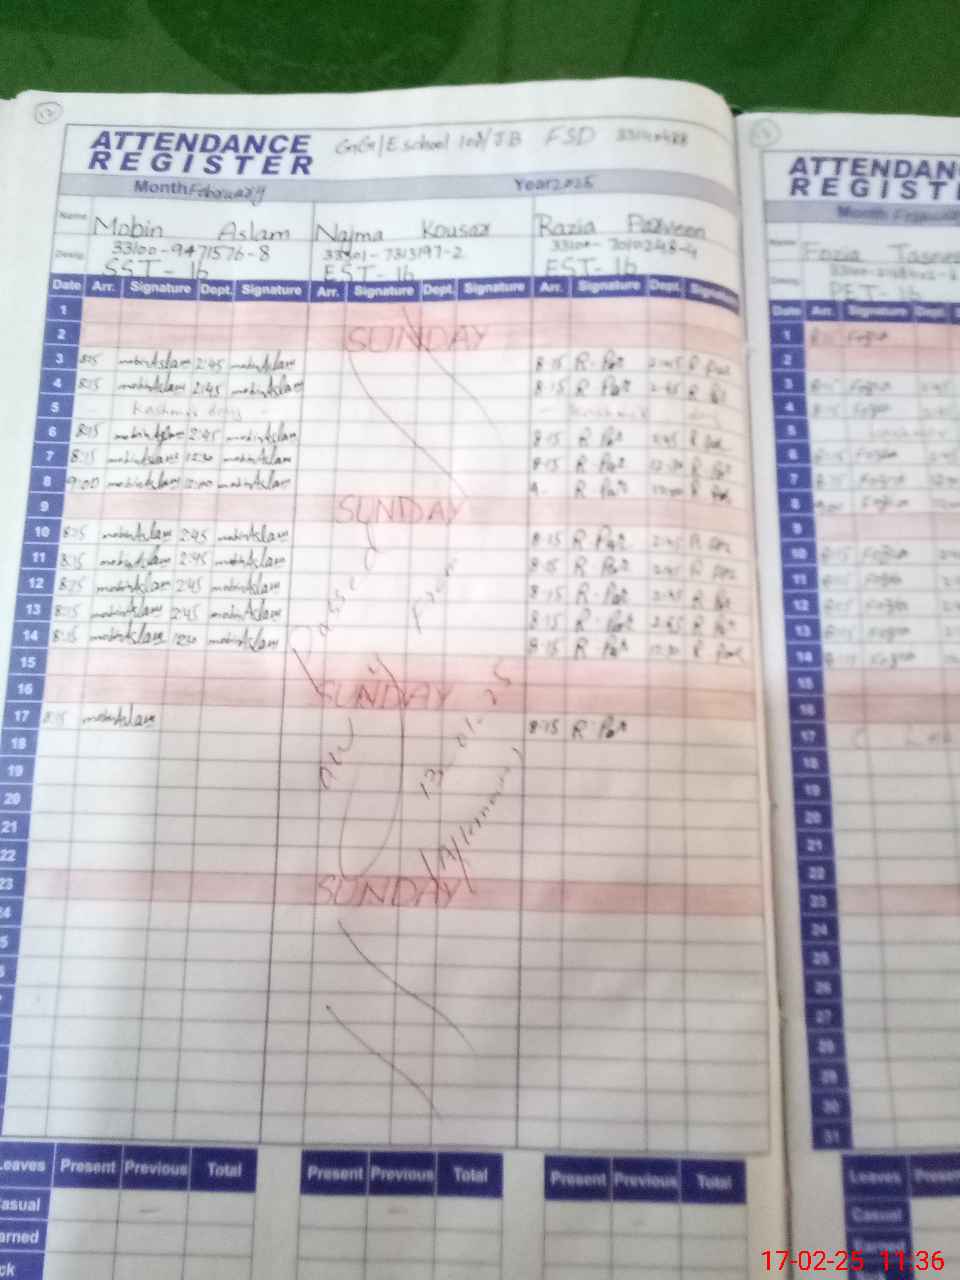 12
ATTENDANCE
REGISTER
School
FSD
Month February
Year 2025
Name Mobin Aslam Najma Kousar Razia Parveen
Desig. 33100-9471576-8
SST-16 EST-16 EST-16
Date Arr. Signature Dept. Signature Arr. Signature Dept. Signature Arr. Signature Dept. Signature
1
2 SUNDAY
3 8:15 mobinAslam 2:45 mobinAslam 8-15 R-Par 2:45 R Par
4 8:15 mobinAslam 2:45 mobinAslam 8-15 R-Par 2:45 R Par
5 Kashmir day Kashmir day
6 8:15 mobinAslam 2:45 mobinAslam 8-15 R Par 2:45 R Par
7 8:15 mobinAslam 12:30 mobinAslam 8-15 R Par 12:30 R Par
8 9:00 mobinAslam 12:00 mobinAslam 9- R Par 12:00 R Par
9 SUNDAY
10 8:15 mobinAslam 2:45 mobinAslam 8-15 R-Par 2:45 R Par
11 8:15 mobinAslam 2:45 mobinAslam 8-15 R Par 2:45 R Par
12 8:15 mobinAslam 2:45 mobinAslam 8-15 R-Par 2:45 R Par
13 8:15 mobinAslam 2:45 mobinAslam 8-15 R-Par 2:45 R Par
14 8:15 mobinAslam 12:30 mobinAslam 8-15 R Par 12:30 R Par
15
16 SUNDAY
17 8:15 mobinAslam 8-15 R-Par
18
19
20
21
22
23 SUNDAY
(Afternoon)
Leaves Present Previous Total Present Previous Total Present Previous Total
Casual
Earned
ATTENDANCE
REGISTER
Month February
Name Fozia
PET-16
Date Arr. Signature Dept.
1
2
3 8:15 Fozia
4 8:15 Fozia
5
6 8:15 Fozia
7 8:15 Fozia
8 9:00 Fozia
9
10 8:15 Fozia
11 8:15 Fozia
12 8:15 Fozia
13 8:15 Fozia
14 8:15 Fozia
15
16
17
18
19
20
21
22
23
24
25
26
27
28
29
30
31
Leaves Present
Casual
Earned
17-02-25 11:36